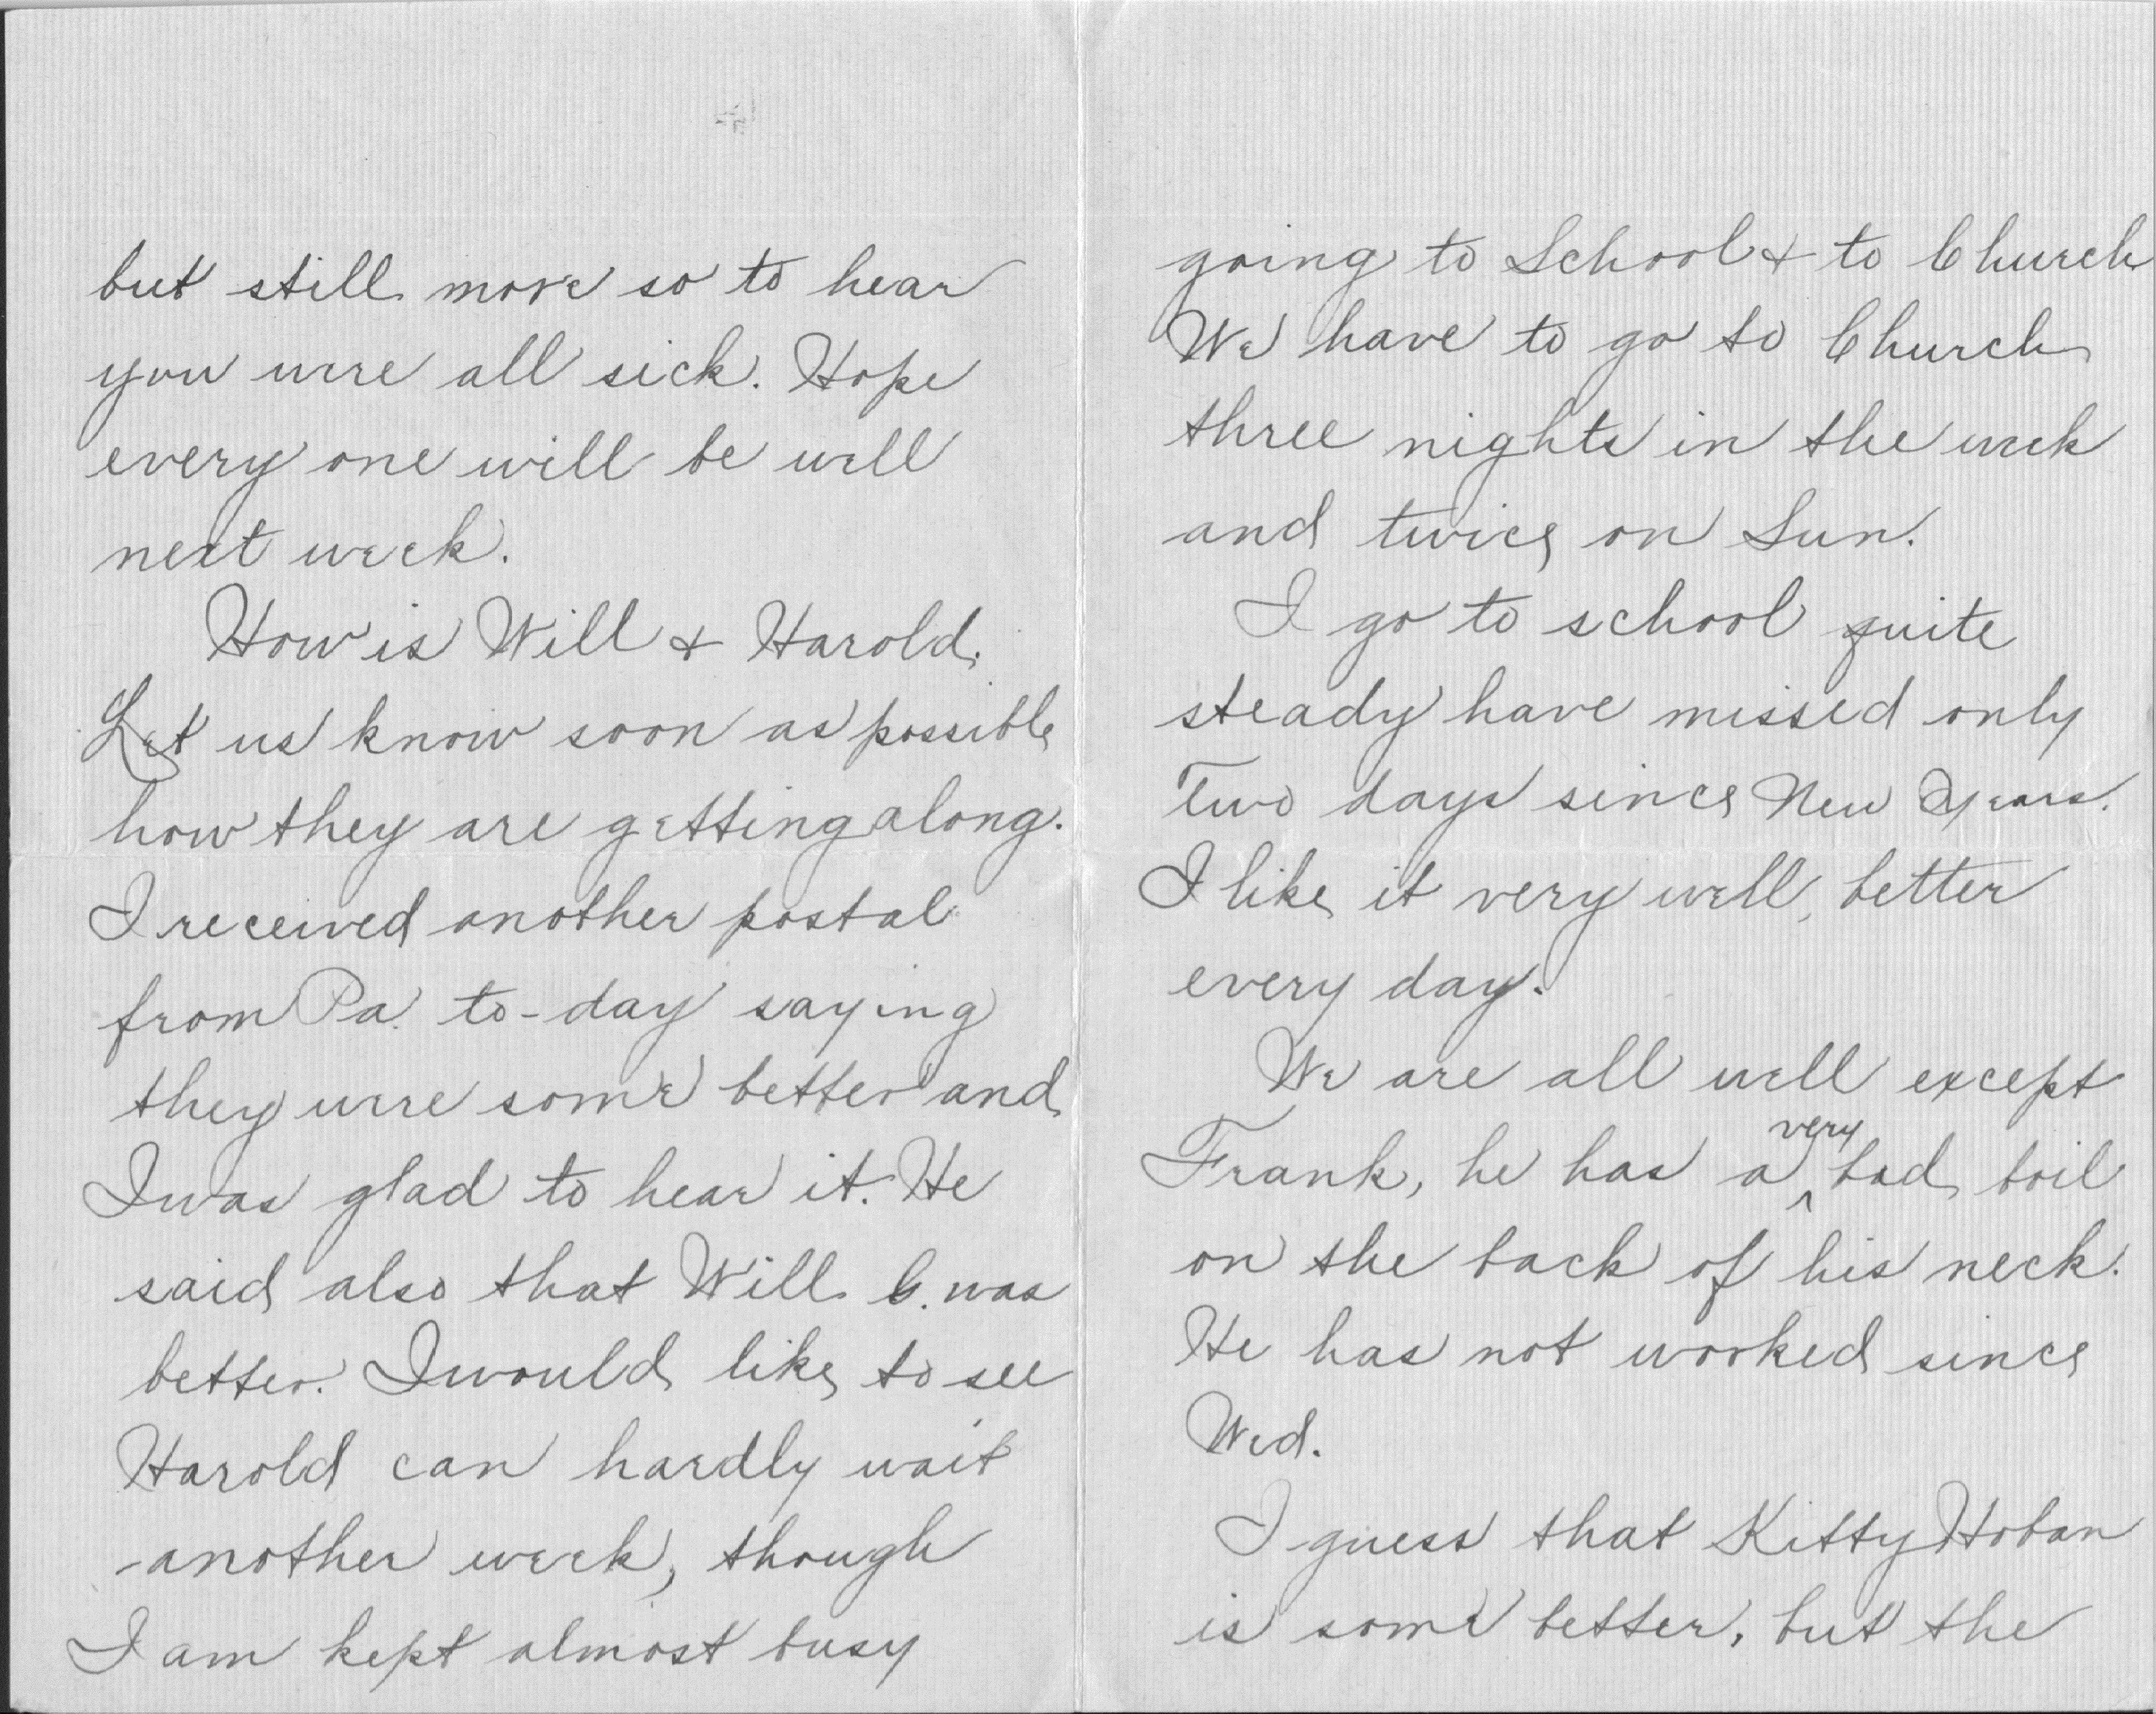 but still more so to hear
you were all sick. Hope
every one will be well
next week.
How is Will & Harold.
Let us know soon as possible
how they are getting along.
I received another postal
from Pa. to-day saying
they were some better and
I was glad to hear it. He
said also that Will C. was
better. I would like to see
Harold can hardly wait
another week, though
I am kept almost busy
going to School & to Church
We have to go to Church
three nights in the week
and twice on Sun.
I go to school quite
steady have missed only
Two days since New Years.
I like it very well, better
every day.
We are all well except
Frank, he has a very bad boil
on the back of his neck.
He has not worked since
Wed.
I guess that Kitty Hoban
is some better, but the